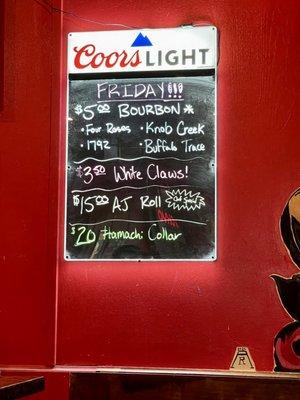 Coors LIGHT
FRIDAY!!!
$5.00 BOURBON*
• Four Roses • Knob Creek
• 1792 • Buffalo Trace
$3.50 White Claws!
$15.00 AJ Roll
$20 Hamachi Collar
R